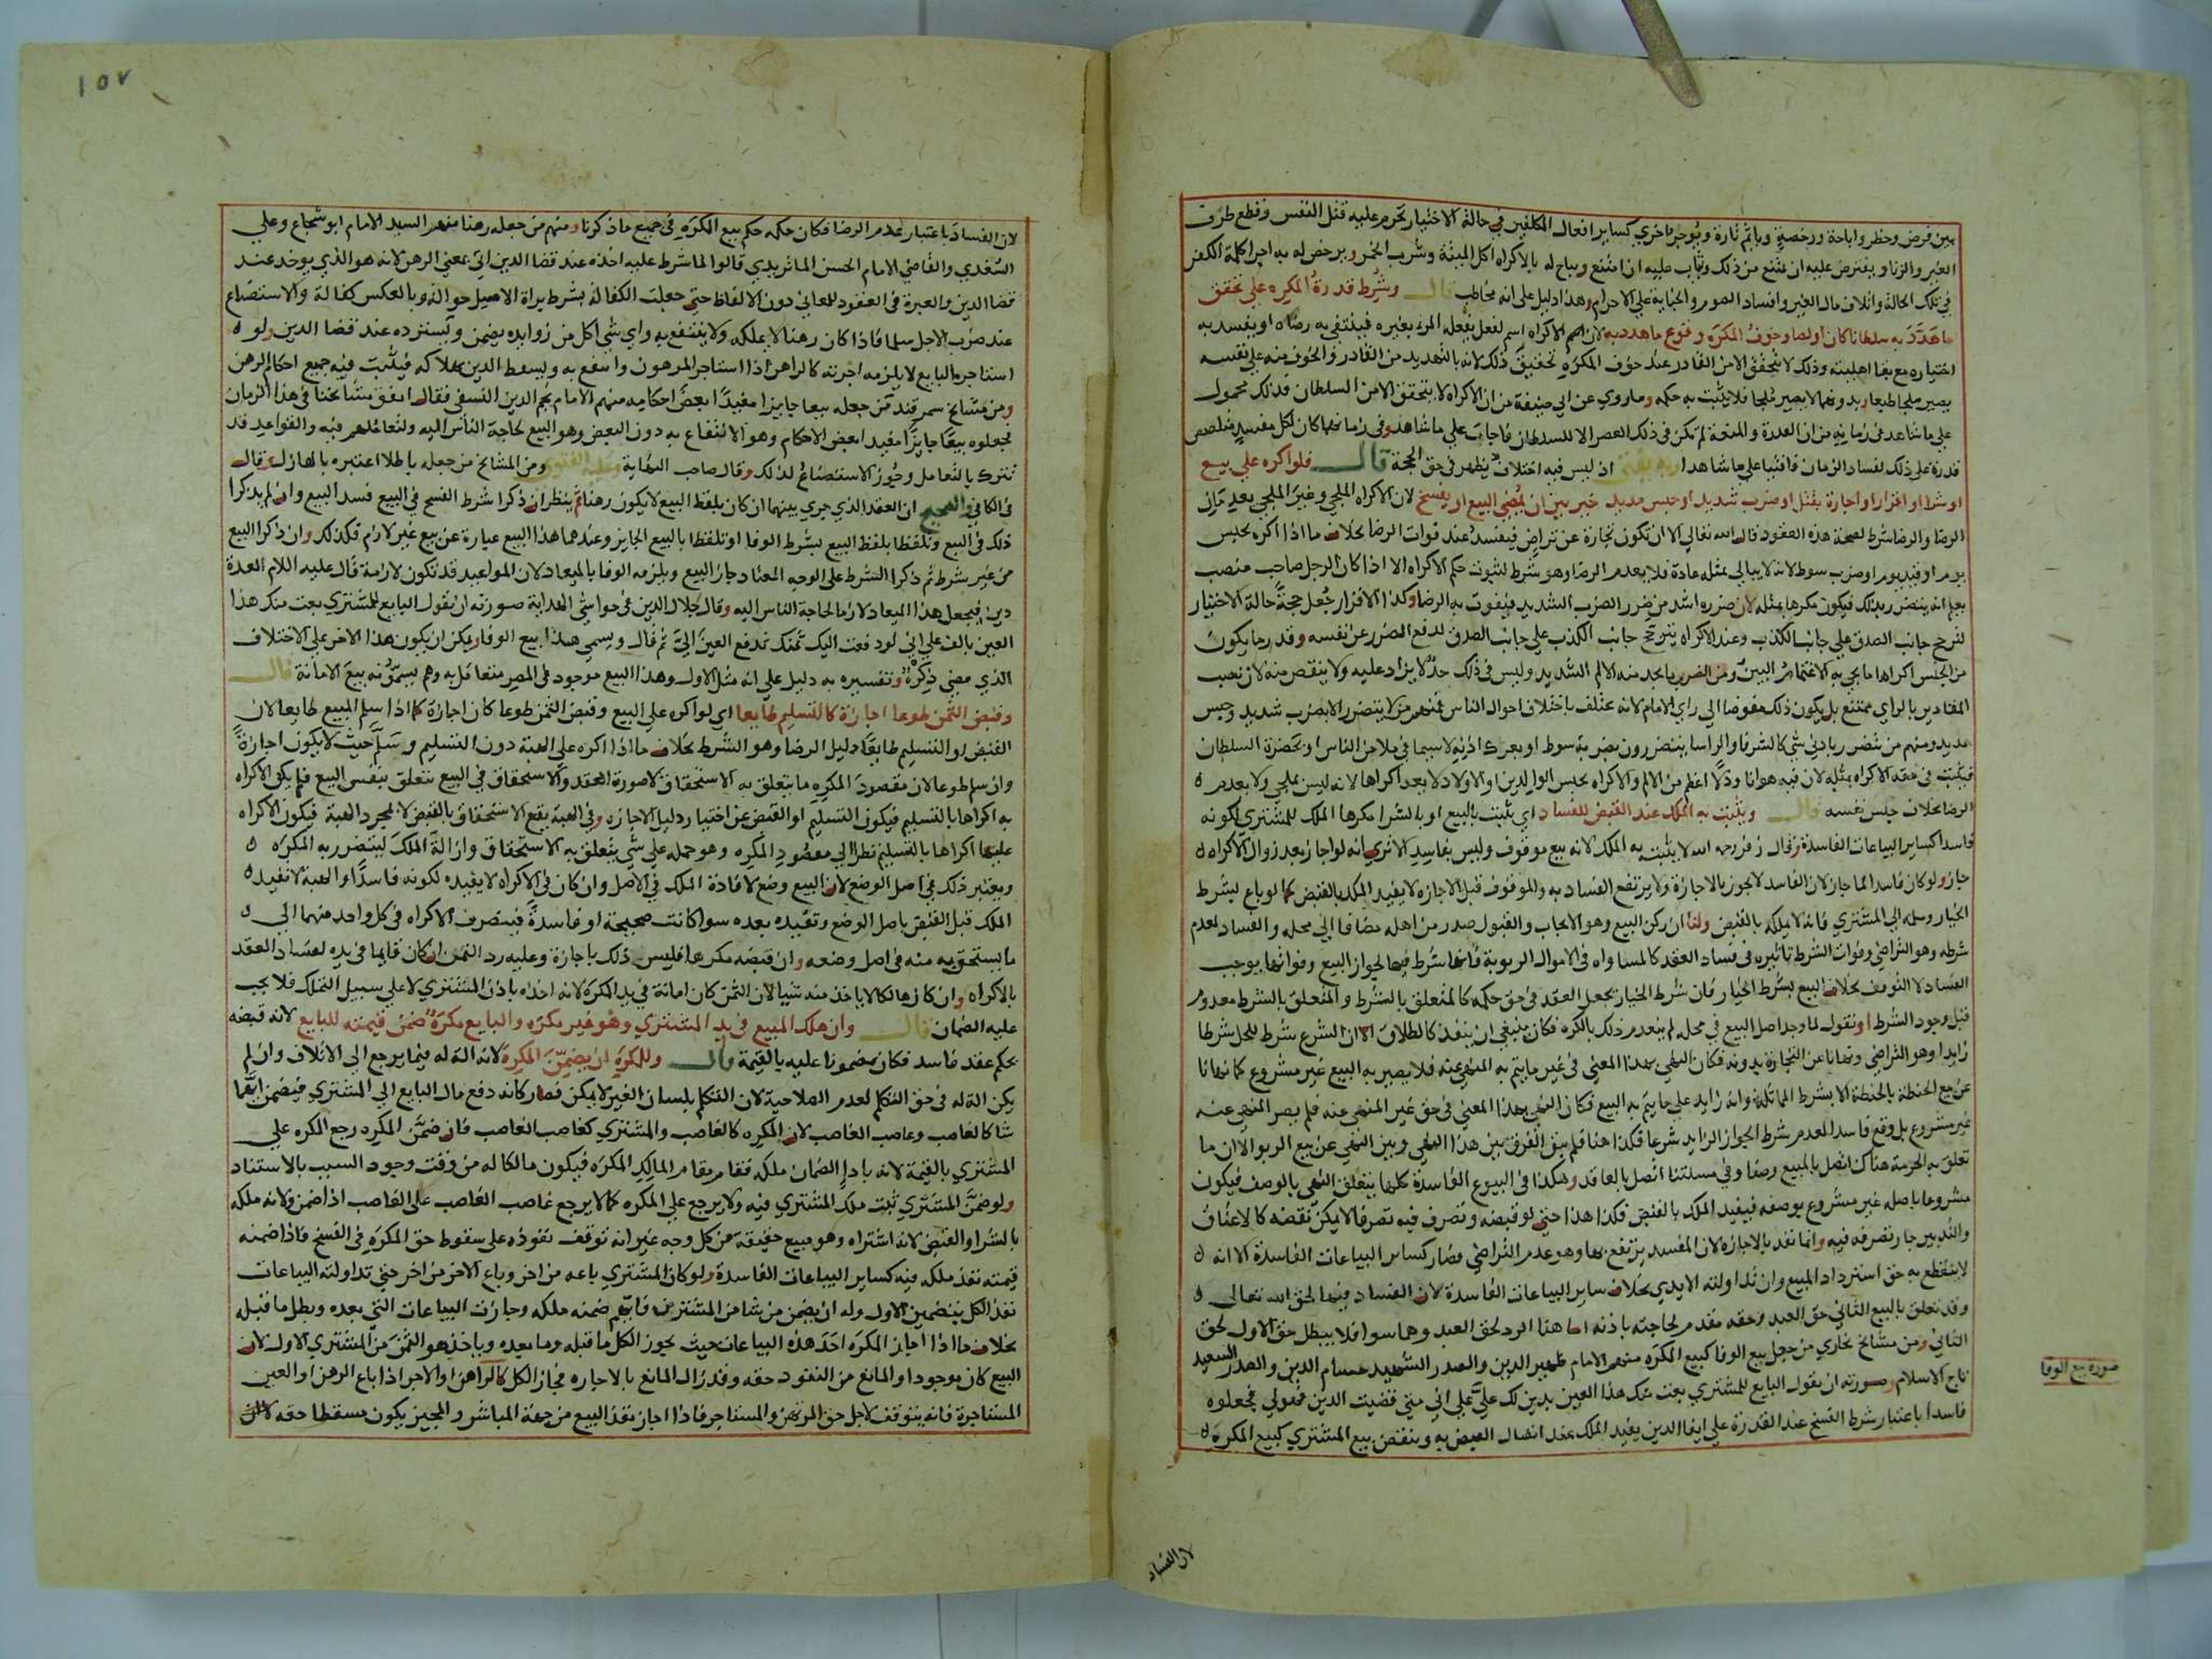 بين فرض وحظر واباحة ورخصة وياثم تارة ويوجر اخري كساير افعال المكلفين في حالة الاختيار تحرم عليه قتل النفس وقطع طرف
الغير والزنا ويفترض عليه ان يمتنع من ذلك ويثاب عليه ان امتنع ويباح له بالاكراه اكل الميتة وشرب الخمر ويرخص له به اجرا كلمة الكفر
في تلك الحالة واتلاف مال الغير وافساد الصوم والجناية علي الاحرام وهذا دليل علي انه مخاطب قال وشرط قدرة المكره علي تحقق
ما هدد به سلطانا كان او لصا وخوف المكره وقوع ما هدد به لان اسم الاكراه اسم لفعل يفعله المرء بغيره فينتفي به رضاه او يفسد به
اختياره مع بقا اهليته وذلك لا يتحقق الا من القادر عند خوف المكره تحقيق ذلك لانه بالتهديد من القادر والخوف منه علي نفسه
يصير ملجا طبعا وبدونهما لا يصير ملجا فلا يثبت به حكمه وما روي عن ابي حنيفة من ان الاكراه لا يتحقق الا من السلطان فذلك محمول
علي ما شاهد في زمانه من ان القدرة والمنعة لم تكن في ذلك العصر الا للسلطان فاجاب علي ما شاهد وفي زمانهما كان لكل مفسد متلصص
قدرة علي ذلك لفساد الزمان فافتيا علي ما شاهدا وبه يفتي اذ ليس فيه اختلاف يظهر في حق الحجة قال فلو اكره علي بيع
او شرا او اقرار او اجارة بقتل او ضرب شديد او حبس مديد خير بين ان يمضي البيع او يفسخ لان الاكراه الملجي وغير الملجي يعدمان
الرضا والرضا شرط لصحة هذه العقود قال الله تعالي الا ان تكون تجارة عن تراض فيفسد عند فوات الرضا بخلاف ما اذا اكره بحبس
يوم او قيد يوم او ضرب سوط لانه لا يبالي بمثله عادة فلا يعدم الرضا وهو شرط لثبوت حكم الاكراه الا اذا كان الرجل صاحب منصب
يعلم انه يتضرر بذلك فيكون مكرها بمثله لان ضرره اشد من ضرر الضرب الشديد فيفوت به الرضا وكذا الاقرار جعل حجة حالة الاختيار
لترجح جانب الصدق علي جانب الكذب وعند الاكراه يترجح جانب الكذب علي جانب الصدق لدفع الضرر عن نفسه وقدر ما يكون
من الحبس اكراها ما يجي به الاغتمام البين ومن الضرب ما يجد منه الالم الشديد وليس في ذلك حد لا يزاد عليه ولا ينقص منه لان نصب
المقادير بالراي ممتنع بل يكون ذلك مفوضا الي راي الامام لانه يختلف باختلاف احوال الناس فمنهم من لا يتضرر الا بضرب شديد وحبس
مديد ومنهم من يتضرر بادني شي كالشرفا والراسا يتضررون بضربة سوط او بعرك اذنه لا سيما في ملا من الناس او بحضرة السلطان
فيثبت في حقه الاكراه بمثله لان فيه هوانا وذلا اعظم من الالم والاكراه بحبس الوالدين او الاولاد لا يعد اكراها لانه ليس بملجي ولا يعدم
الرضا بخلاف حبس نفسه قال ويثبت به الملك عند القبض للفساد اي يثبت بالبيع او بالشرا مكرها الملك للمشتري لكونه
فاسدا كساير البياعات الفاسدة وقال زفر رحمه الله لا يثبت به الملك لانه بيع موقوف وليس بفاسد الا تري انه لو اجاز بعد زوال الاكراه
جاز ولو كان فاسدا لما جاز لان الفاسد لا يجوز بالاجازة ولا يرتفع الفساد به والموقوف قبل الاجازه لا يفيد الملك بالقبض كما لو باع بشرط
الخيار وسلمه الي المشتري فانه لا يملكه بالقبض ولنا ان ركن البيع وهو الايجاب والقبول صدر من اهله مضافا الي محله والفساد لعدم
شرطه وهو التراضي وفوات الشرط تاثيره في فساد العقد كالمساواه في الاموال الربوية فانها شرط فيها لجواز البيع وفواتها يوجب
الفساد لا التوقف بخلاف البيع بشرط الخيار فان شرط الخيار يجعل العقد في حق حكمه كالمتعلق بالشرط والمتعلق بالشرط معدوم
قبل وجود الشرط او نقول لما وجد اصل البيع في محله لم ينعدم ذلك بالكره فكان ينبغي ان ينفذ كالطلاق الا ان الشرع شرط للحل شرطا
زايدا وهو التراضي ونهانا عن التجارة بدونه فكان النهي بهذا المعني في غير ما يتم به المنهي عنه فلا يصير به البيع غير مشروع كما نهانا
عن بيع الحنطة بالحنطة الا بشرط المماثلة وانه زايد علي ما يتم به البيع فكان النهي بهذا المعني في حق غير المنهي عنه فلم يصر المنهي عنه
غير مشروع بل وقع فاسدا لعدم شرط الجواز الزايد شرعا فكذا هنا فلم يبق الفرق بين هذا النهي وبين النهي عن بيع الربوا الا ان ما
تعلق به الحرمة هناك اتصل بالمبيع وصفا وفي مسلتنا اتصل بالعاقد وهكذا في البيوع الفاسدة كلها يتعلق النهي بالوصف فيكون
مشروعا باصله غير مشروع بوصفه فيفيد الملك بالقبض فكذا هذا حتي لو قبضه وتصرف فيه تصرفا لا يمكن نقضه كالاعتاق
والتدبير جاز تصرفه فيه وانما نفذ بالاجازه لان المفسد يرتفع بها وهو عدم التراضي فصار كساير البياعات الفاسدة الا انه
لا ينقطع به حق استرداد المبيع وان تداولته الايدي بخلاف ساير البياعات الفاسدة لان الفساد فيها لحق الله تعالي
وقد تعلق بالبيع الثاني حق العبد وحقه مقدم لحاجته باذنه اما هنا الرد لحق العبد وهما سوا فلا يبطل حق الاول لحق
الثاني ومن مشايخ بخاري من جعل بيع الوفا كبيع المكره منهم الامام ظهير الدين والصدر الشهيد حسام الدين والصدر السعيد
تاج الاسلام وصورته ان يقول البايع للمشتري بعت منك هذا العين بدين لك علي علي اني متي قضيت الدين فهو لي فجعلوه
فاسدا باعتبار شرط الفسخ عند القدرة علي ايفا الدين يفيد الملك عند اتصال القبض به وينقض بيع المشتري كبيع المكره
صورة بيع الوفا
لان الفساد
١٥٧
لان الفساد باعتبار عدم الرضا فكان حكمه حكم بيع المكره في جميع ما ذكرنا ومنهم من جعله رهنا منهم السيد الامام ابو شجاع وعلي
السغدي والقاضي الامام الحسن الماتريدي قالوا لما شرط عليه اخذه عند قضا الدين اتي بمعني الرهن لانه هو الذي يوخذ عند
قضا الدين والعبرة في العقود للمعاني دون الالفاظ حتي جعلت الكفالة بشرط براة الاصيل حوالة وبالعكس كفالة والاستصناع
عند ضرب الاجل سلما فاذا كان رهنا لا يملكه ولا ينتفع به واي شي اكل من زوايده يضمن ويسترده عند قضا الدين ولو
استاجره البايع لا يلزمه اجرته كالراهن اذا استاجر المرهون وانتفع به ويسقط الدين بهلاكه فيثبت فيه جميع احكام الرهن
ومن مشايخ سمرقند من جعله بيعا جايزا مفيدا بعض احكامه منهم الامام نجم الدين النسفي فقال اتفق مشايخنا في هذا الزمان
فجعلوه بيعا جايزا مفيد بعض الاحكام وهو الانتفاع به دون البعض وهو البيع لحاجة الناس اليه ولتعاملهم فيه والقواعد قد
تترك بالتعامل وجوز الاستصناع لذلك وقال صاحب النهاية وعليه الفتوي ومن المشايخ من جعله باطلا اعتبره بالهازل وقال
في الكافي والصحيح ان العقد الذي جري بينهما ان كان بلفظ البيع لا يكون رهنا ثم ينظر ان ذكرا شرط الفسخ في البيع فسد البيع وان لم يذكرا
ذلك في البيع وتلفظا بلفظ البيع بشرط الوفا او تلفظا بالبيع الجايز وعندهما هذا البيع عبارة عن بيع غير لازم فكذلك وان ذكرا البيع
من غير شرط ثم ذكرا الشرط علي الوجه المعتاد جاز البيع ويلزمه الوفا بالميعاد لان المواعيد قد تكون لازمة قال عليه السلام العدة
دين فيجعل هذا الميعاد لازما لحاجة الناس اليه وقال جلال الدين في حواشي الهداية صورته ان يقول البايع للمشتري بعت منك هذا
العين بالف علي اني لو دفعت اليك ثمنك تدفع العين الي ثم قال ويسمي هذا بيع الوفا ويمكن ان يكون هذا الاخر علي الاختلاف
الذي مضي ذكره وتفسيره به دليل علي انه مثل الاول وهذا البيع موجود في المصر متعامل به وهم يسمونه بيع الامانة قال
وقبض الثمن طوعا اجازة كالتسليم طايعا اي لو اكره علي البيع وقبض الثمن طوعا كان اجازة كما اذا سلم المبيع طايعا لان
القبض او التسليم طايعا دليل الرضا وهو الشرط بخلاف ما اذا اكره علي الهبة دون التسليم وسلم حيث لا يكون اجازة
وان سلم طوعا لان مقصود المكره ما يتعلق به الاستحقاق لا صورة العقد والاستحقاق في البيع يتعلق بنفس البيع فلم يكن الاكراه
به اكراها بالتسليم فيكون التسليم او القبض عن اختيار دليل الاجازه وفي الهبة يقع الاستحقاق بالقبض لا بمجرد الهبة فيكون الاكراه
عليها اكراها بالتسليم نظرا الي مقصود المكره وهو حمله علي شي يتعلق به الاستحقاق وازالة الملك ليتضرر به المكره
ويعتبر ذلك في اصل الوضع لان البيع وضع لافادة الملك في الاصل وان كان في الاكراه لا يفيده لكونه فاسدا والهبة لا تفيد
الملك قبل القبض باصل الوضع وتفيده بعده سوا كانت صحيحة او فاسدة فينصرف الاكراه في كل واحد منهما الي
ما يستحق به منه في اصل وضعه وان قبضه مكرها فليس ذلك باجازة وعليه رد الثمن ان كان قايما في يده لفساد العقد
بالاكراه وان كان هالكا لا ياخذ منه شيا لان الثمن كان امانة في يد المكره لانه اخذه باذن المشتري لا علي سبيل التملك فلا يجب
عليه الضمان قال وان هلك المبيع في يد المشتري وهو غير مكره والبايع مكره ضمن قيمته للبايع لانه قبضه
بحكم عقد فاسد فكان مضمونا عليه بالقيمة قال وللمكره ان يضمن المكره لانه الة له فيما يرجع الي الاتلاف وان لم
يكن الة له في حق التكلم لعدم الصلاحية لان التكلم بلسان الغير لا يمكن فصار كانه دفع مال البايع الي المشتري فيضمن ايهما
شا كالغاصب وغاصب الغاصب لان المكره كالغاصب والمشتري كغاصب الغاصب فان ضمن المكره رجع المكره علي
المشتري بالقيمة لانه بادا الضمان ملكه فقام مقام المالك المكره فيكون مالكا له من وقت وجود السبب بالاستناد
ولو ضمن المشتري ثبت ملك المشتري فيه ولا يرجع علي المكره كما لا يرجع غاصب الغاصب علي الغاصب اذا ضمن ولانه ملكه
بالشرا والقبض لانه اشتراه وهو مبيع حقيقة من كل وجه غير انه توقف نفوذه علي سقوط حق المكره في الفسخ فاذا ضمنه
قيمته نفذ ملكه فيه كساير البياعات الفاسدة ولو كان المشتري باعه من اخر وباع الاخر من اخر حتي تداولته البياعات
نفذ الكل بتضمين الاول وله ان يضمن من شا من المشترين فايهم ضمنه ملكه وجازت البياعات التي بعده وبطل ما قبله
بخلاف ما اذا اجاز المكره احد هذه البياعات حيث يجوز الكل ما قبله وما بعده وياخذ هو الثمن من المشتري الاول لان
البيع كان موجودا والمانع من النفوذ حقه وقد زال المانع بالاجازه فجاز الكل كالراهن او الاجر اذا باع الرهن او العين
المستاجرة فانه يتوقف لاجل حق المرتهن والمستاجر فاذا اجاز نفذ البيع من جهة المباشر والمجيز يكون مسقطا حقه لا ان